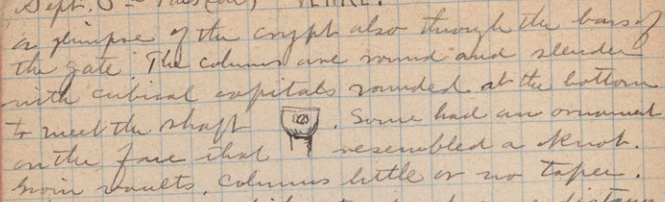 Sept. 5th Tuesday, VENICE.
a glimpse of the crypt also through the bars of
the gate. The columns are round and slender
with cubical capitals rounded at the bottom
to meet the shaft . Some had an ornament
on the face that resembled a knot.
Groin vaults, columns little or no taper.